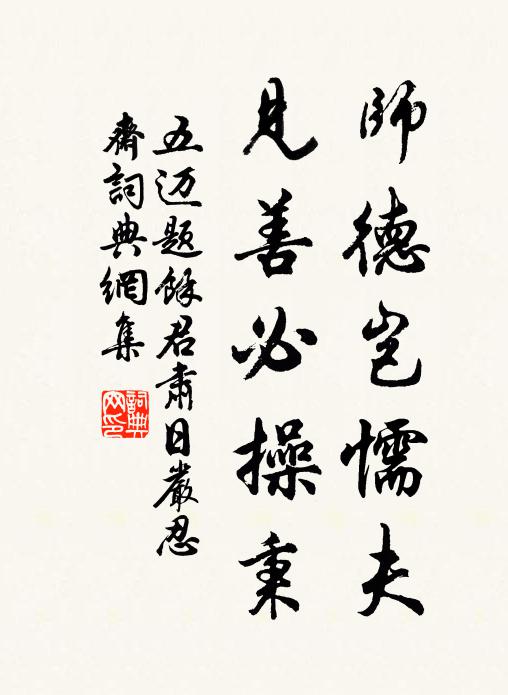 師德岂懦夫
見善必操秉
五迈题餘君肅日嚴忍
齋詞典網集
詞典网印